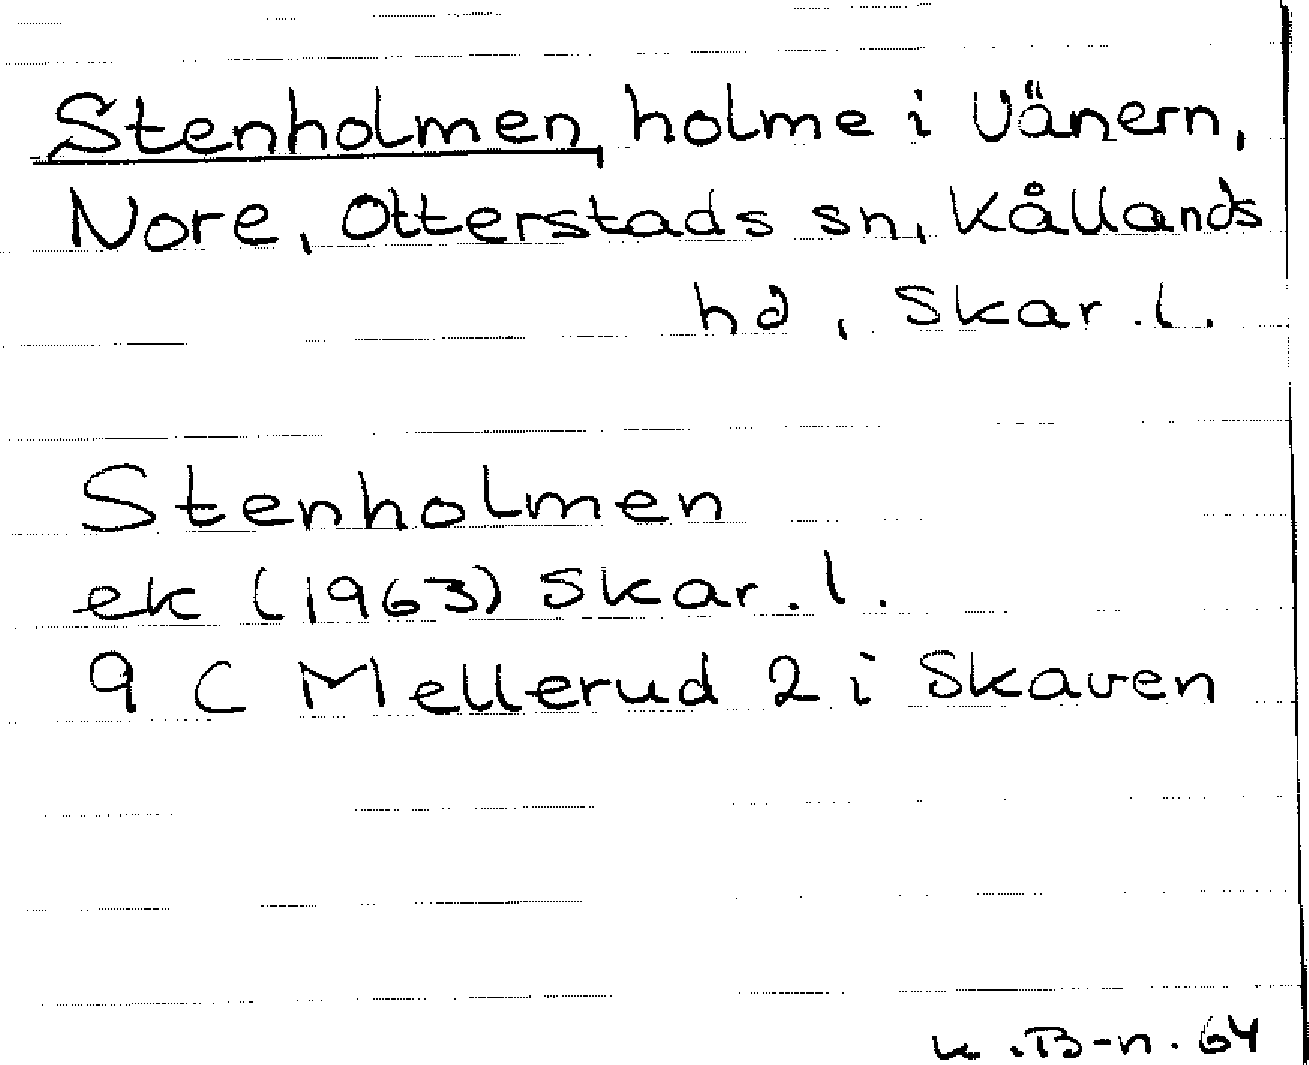 Stenholmen, holme i Vänern,
Nore, Otterstads sn, Kållands
hd, Skar.l.
Stenholmen
ek (1963) Skar.l.
9 C Mellerud 2 i Skaven
K.B-n.64